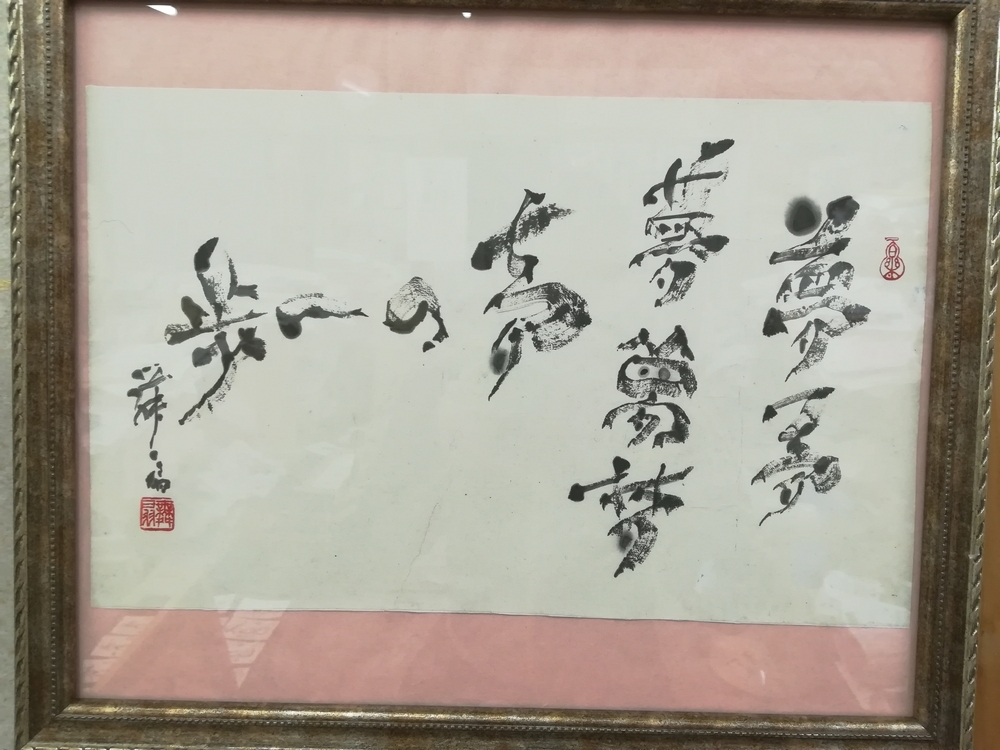 夢夢
夢夢夢
夢の一歩